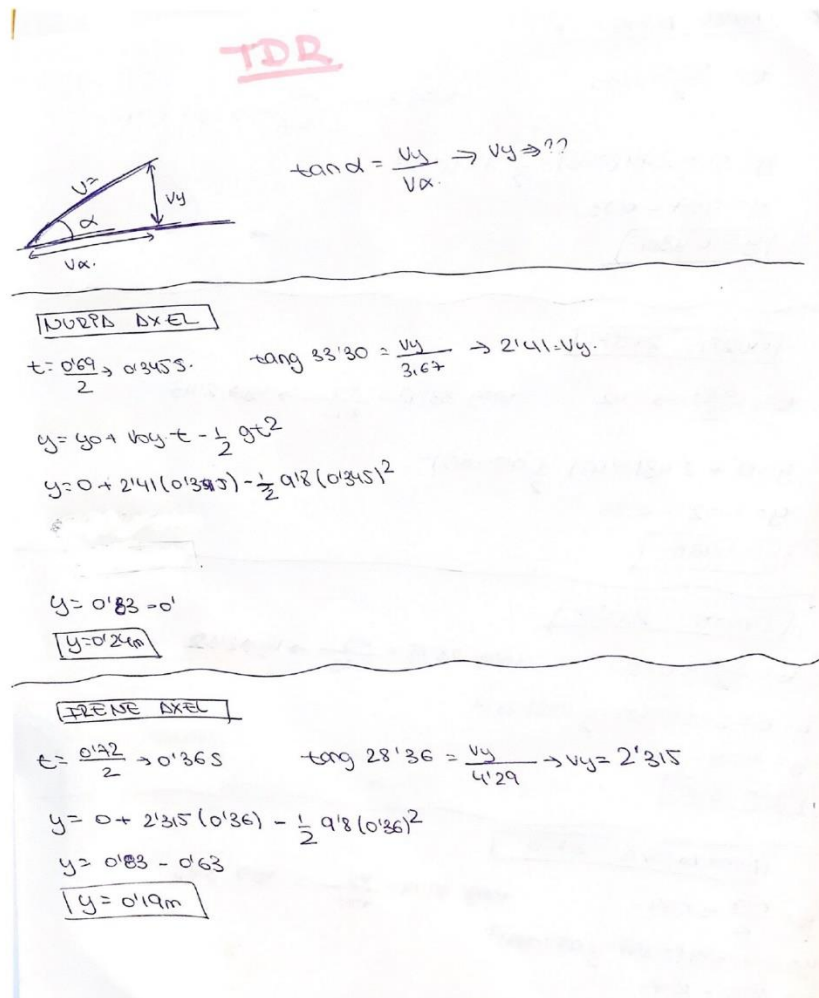 TDR
tan α = Vy/Vα. → Vy → ??
V=
α
Vy
Vα.
NURIA AXEL
t = 0'69/2 → 0'345 s. tang 33'30 = Vy/3,67 → 2'41 = Vy.
y = y0 + Voy · t - 1/2 gt²
y = 0 + 2'41 (0'345) - 1/2 9'8 (0'345)²
y = 0'83 - 0'
y = 0'24m
IRENE AXEL
t = 0'72/2 → 0'36 s tang 28'36 = Vy/4'29 → Vy = 2'315
y = 0 + 2'315 (0'36) - 1/2 9'8 (0'36)²
y = 0'83 - 0'63
y = 0'19m